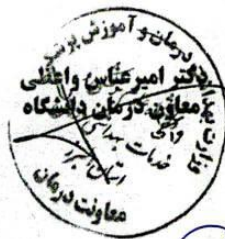 وزارت بهداشت درمان و آموزش پزشکی
دکتر امیرعباس واعظی
معاون درمان دانشگاه
خدمات بهداشتی
استان البرز
معاونت درمان